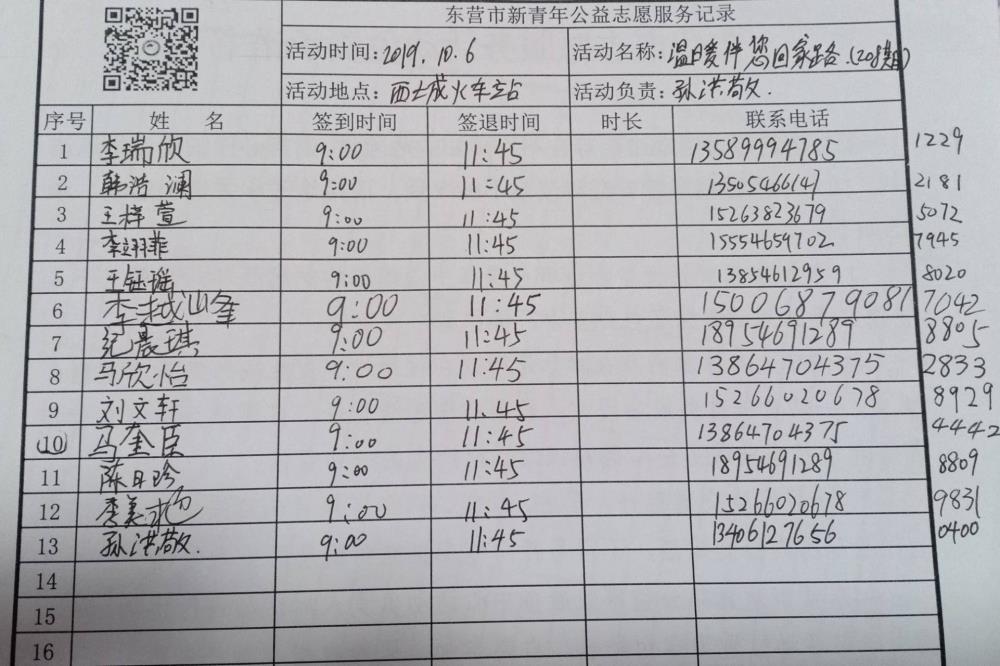 东营市新青年公益志愿服务记录
活动时间: 2019.10.6 活动名称: 温暖伴您回家路.(208期)
活动地点: 西城火车站 活动负责: 孙洪敬.
序号 姓 名 签到时间 签退时间 时长 联系电话
1 李瑞欣 9:00 11:45 13589994785 1229
2 韩浩澜 9:00 11:45 13505466147 2181
3 王梓萱 9:00 11:45 15263823679 5072
4 李翊菲 9:00 11:45 15554659702 7945
5 王钰瑶 9:00 11:45 13854612959 8020
6 李越峰 9:00 11:45 15006879081 7042
7 纪晨琪 9:00 11:45 18954691289 8805
8 马欣怡 9:00 11:45 13864704375 2833
9 刘文轩 9:00 11.45 15266020678 8929
10 马奎臣 9:00 11:45 13864704375 4442
11 陈日珍 9:00 11:45 18954691289 8809
12 李美 9:00 11:45 15266020678 9831
13 孙洪敬. 9:00 11:45 13406127656 0400
14
15
16